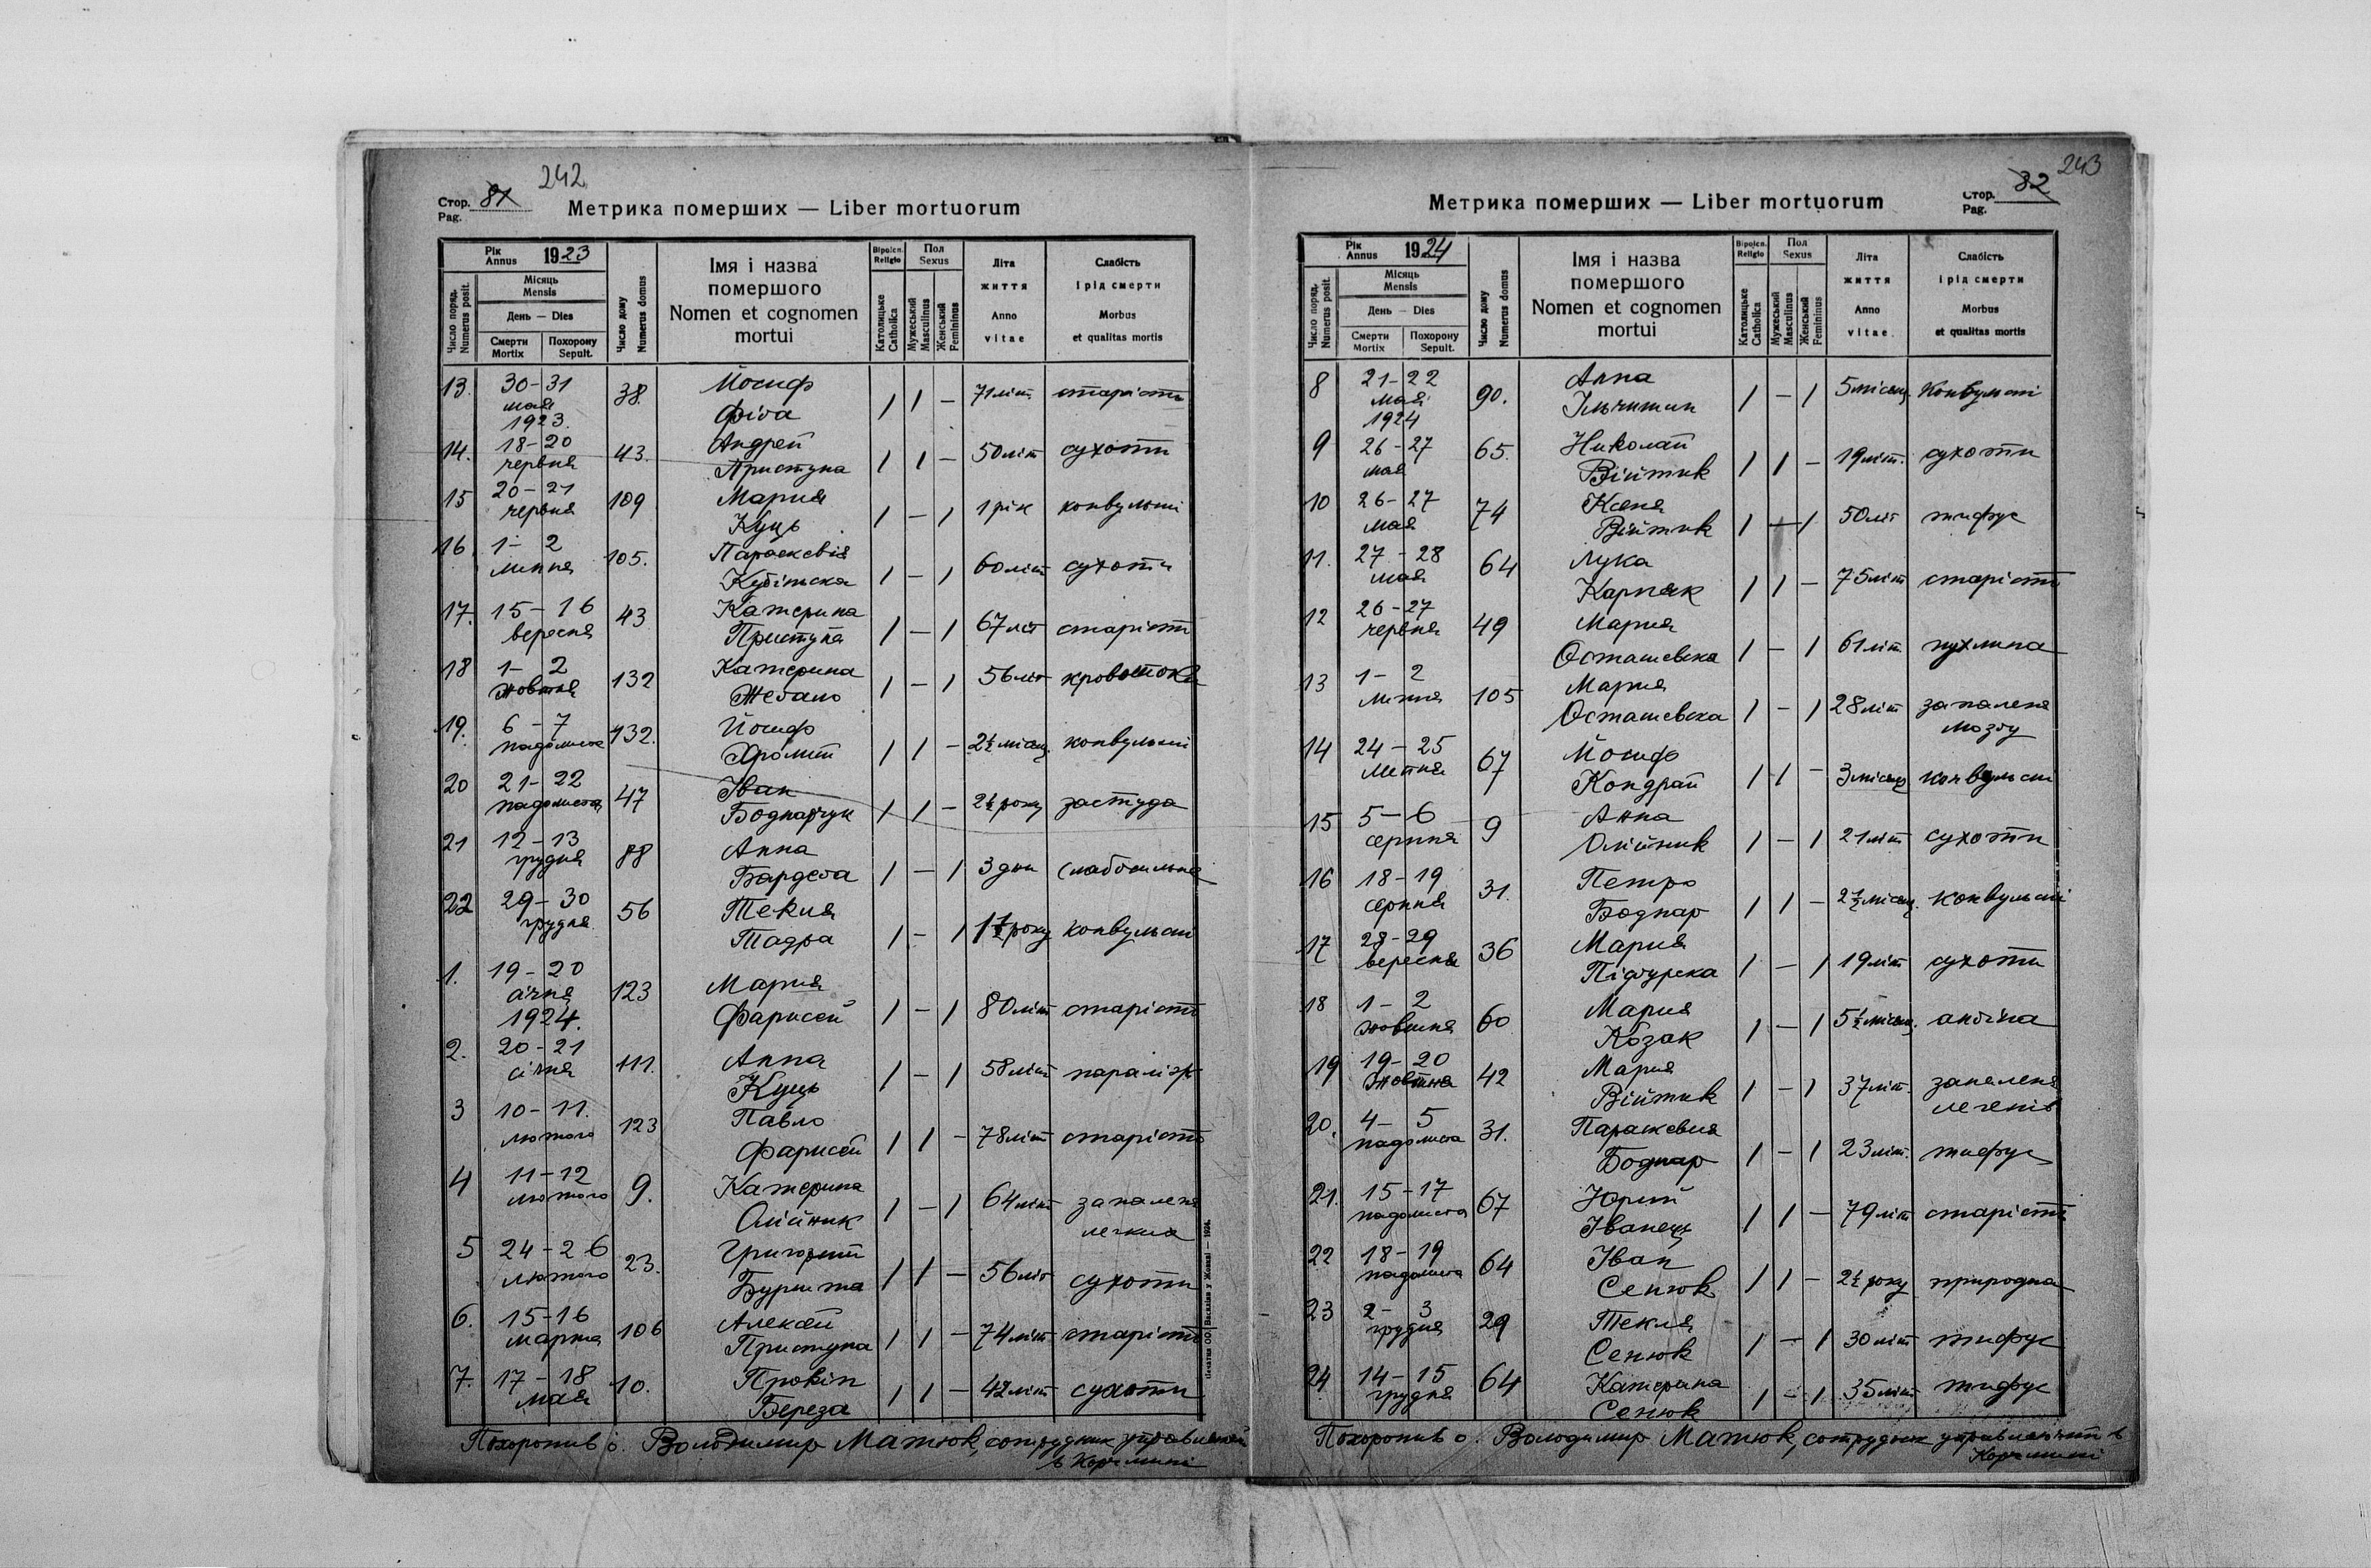 242
Стор. 81
Pag.
Метрика померших — Liber mortuorum
Рік
Annus 1923
Місяць
Mensis
День — Dies
Смерти
Mortix
Похорону
Sepult.
Число поряд.
Numerus posit.
Число дому
Numerus domus
Імя і назва
помершого
Nomen et cognomen
mortui
Віроісп.
Religio
Католицьке
Catholica
Пол
Sexus
Мужеський
Masculinus
Женський
Femininus
Літа
життя
Anno
vitae
Слабість
і рід смерти
Morbus
et qualitas mortis
13. 30-31 мая 1923. 38. Йосиф Фіга 1 1 – 71 літ старість
14. 18-20 червня 43. Андрей Приступа 1 1 – 50 літ сухоти
15 20-21 червня 109 Мария Куць 1 – 1 1 рік конвульсиі
16 1-2 липня 105. Параскевія 1 – 1 60 літ сухоти
17. 15-16 вересня 43 Катерина Приступа 1 – 1 67 літ старість
18 1-2 жовтня 132 Катерина 1 – 1 56 літ
19. 6-7 падолиста 132. Йосиф 1 1 – 2½ місяц. конвульсиі
20 21-22 падолиста 47 Іван Боднарчук 1 1 – 2½ року застуда
21 12-13 грудня 88 Анна 1 – 1 3 дни
22 29-30 грудня 56 Текля Тадра 1 – 1 1½ року конвульсиі
1. 19-20 січня 1924. 123 Мария Фарисей 1 – 1 80 літ старість
2. 20-21 січня 111. Анна Куць 1 – 1 58 літ параліж
3 10-11. лютого 123 Павло Фарисей 1 1 – 78 літ старість
4 11-12 лютого 9. Катерина Олійник 1 – 1 64 літ запаленя легких
5 24-26 лютого 23. Григорий 1 1 – 56 літ сухоти
6. 15-16 марта 106 Алексей Приступа 1 1 – 74 літ старість
7. 17-18 мая 10. Прокіп Береза 1 1 – 42 літ сухоти
Похоронив о. Володимир Матюк, сотрудник управляючий
в Корчмині
243
Стор. 82
Pag.
Метрика померших — Liber mortuorum
Рік
Annus 1924
Місяць
Mensis
День — Dies
Смерти
Mortix
Похорону
Sepult.
Число поряд.
Numerus posit.
Число дому
Numerus domus
Імя і назва
помершого
Nomen et cognomen
mortui
Віроісп.
Religio
Католицьке
Catholica
Пол
Sexus
Мужеський
Masculinus
Женський
Femininus
Літа
життя
Anno
vitae
Слабість
і рід смерти
Morbus
et qualitas mortis
8 21-22 мая 1924 90. Анна Ільчишин 1 – 1 5 місяц. Конвульсиі
9 26-27 мая 65. Николай Війтик 1 1 – 19 літ. сухоти
10 26-27 мая 74 Ксеня Війтик 1 – 1 50 літ тифус
11. 27-28 мая 64 Лука Карпяк 1 1 – 75 літ старість
12 26-27 червня 49 Мария Осташевска 1 – 1 61 літ пухлина
13 1-2 липня 105 Мария Осташевска 1 – 1 28 літ запаленя мозгу
14 24-25 липня 67 Йосиф Кондрай 1 1 – 3 місяц конвульсиі
15 5-6 серпня 9 Анна Олійник 1 – 1 21 літ сухоти
16 18-19 серпня 31. Петро Боднар 1 1 – 2½ місяц. конвульсиі
17 28-29 вересня 36 Мария 1 – 1 19 літ сухоти
18 1-2 жовтня 60 Мария Козак 1 – 1 5½ місяц. ангіна
19 19-20 жовтня 42 Мария Війтик 1 – 1 37 літ. запаленя легенів
20. 4-5 падолиста 31. Параскевия Боднар 1 – 1 23 літ. тифус
21. 15-17 падолиста 67 Юрий Іванець 1 1 – 79 літ старість
22 18-19 падолиста 64 Іван Сенюк 1 1 – 2½ року природна
23 2-3 грудня 29 Текля Сенюк 1 – 1 30 літ тифус
24 14-15 грудня 64 Катерина Сенюк 1 – 1 35 літ тифус
Похоронив о. Володимир Матюк, сотрудник управляючий в
Корчмині